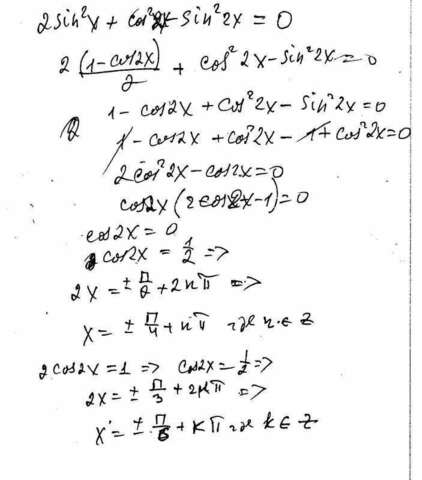 2sin²x + cos²2x - sin²2x = 0
2 (1-cos2x)/2 + cos²2x - sin²2x = 0
1 - cos2x + cos²2x - sin²2x = 0
1 - cos2x + cos²2x - 1 + cos²2x = 0
2cos²2x - cos2x = 0
cos2x (2cos2x - 1) = 0
cos2x = 0
cos2x = 1/2 =>
2x = ± π/2 + 2nπ =>
x = ± π/4 + nπ где n ∈ Z
2cos2x = 1 => cos2x = 1/2 =>
2x = ± π/3 + 2kπ =>
x = ± π/6 + kπ где k ∈ Z